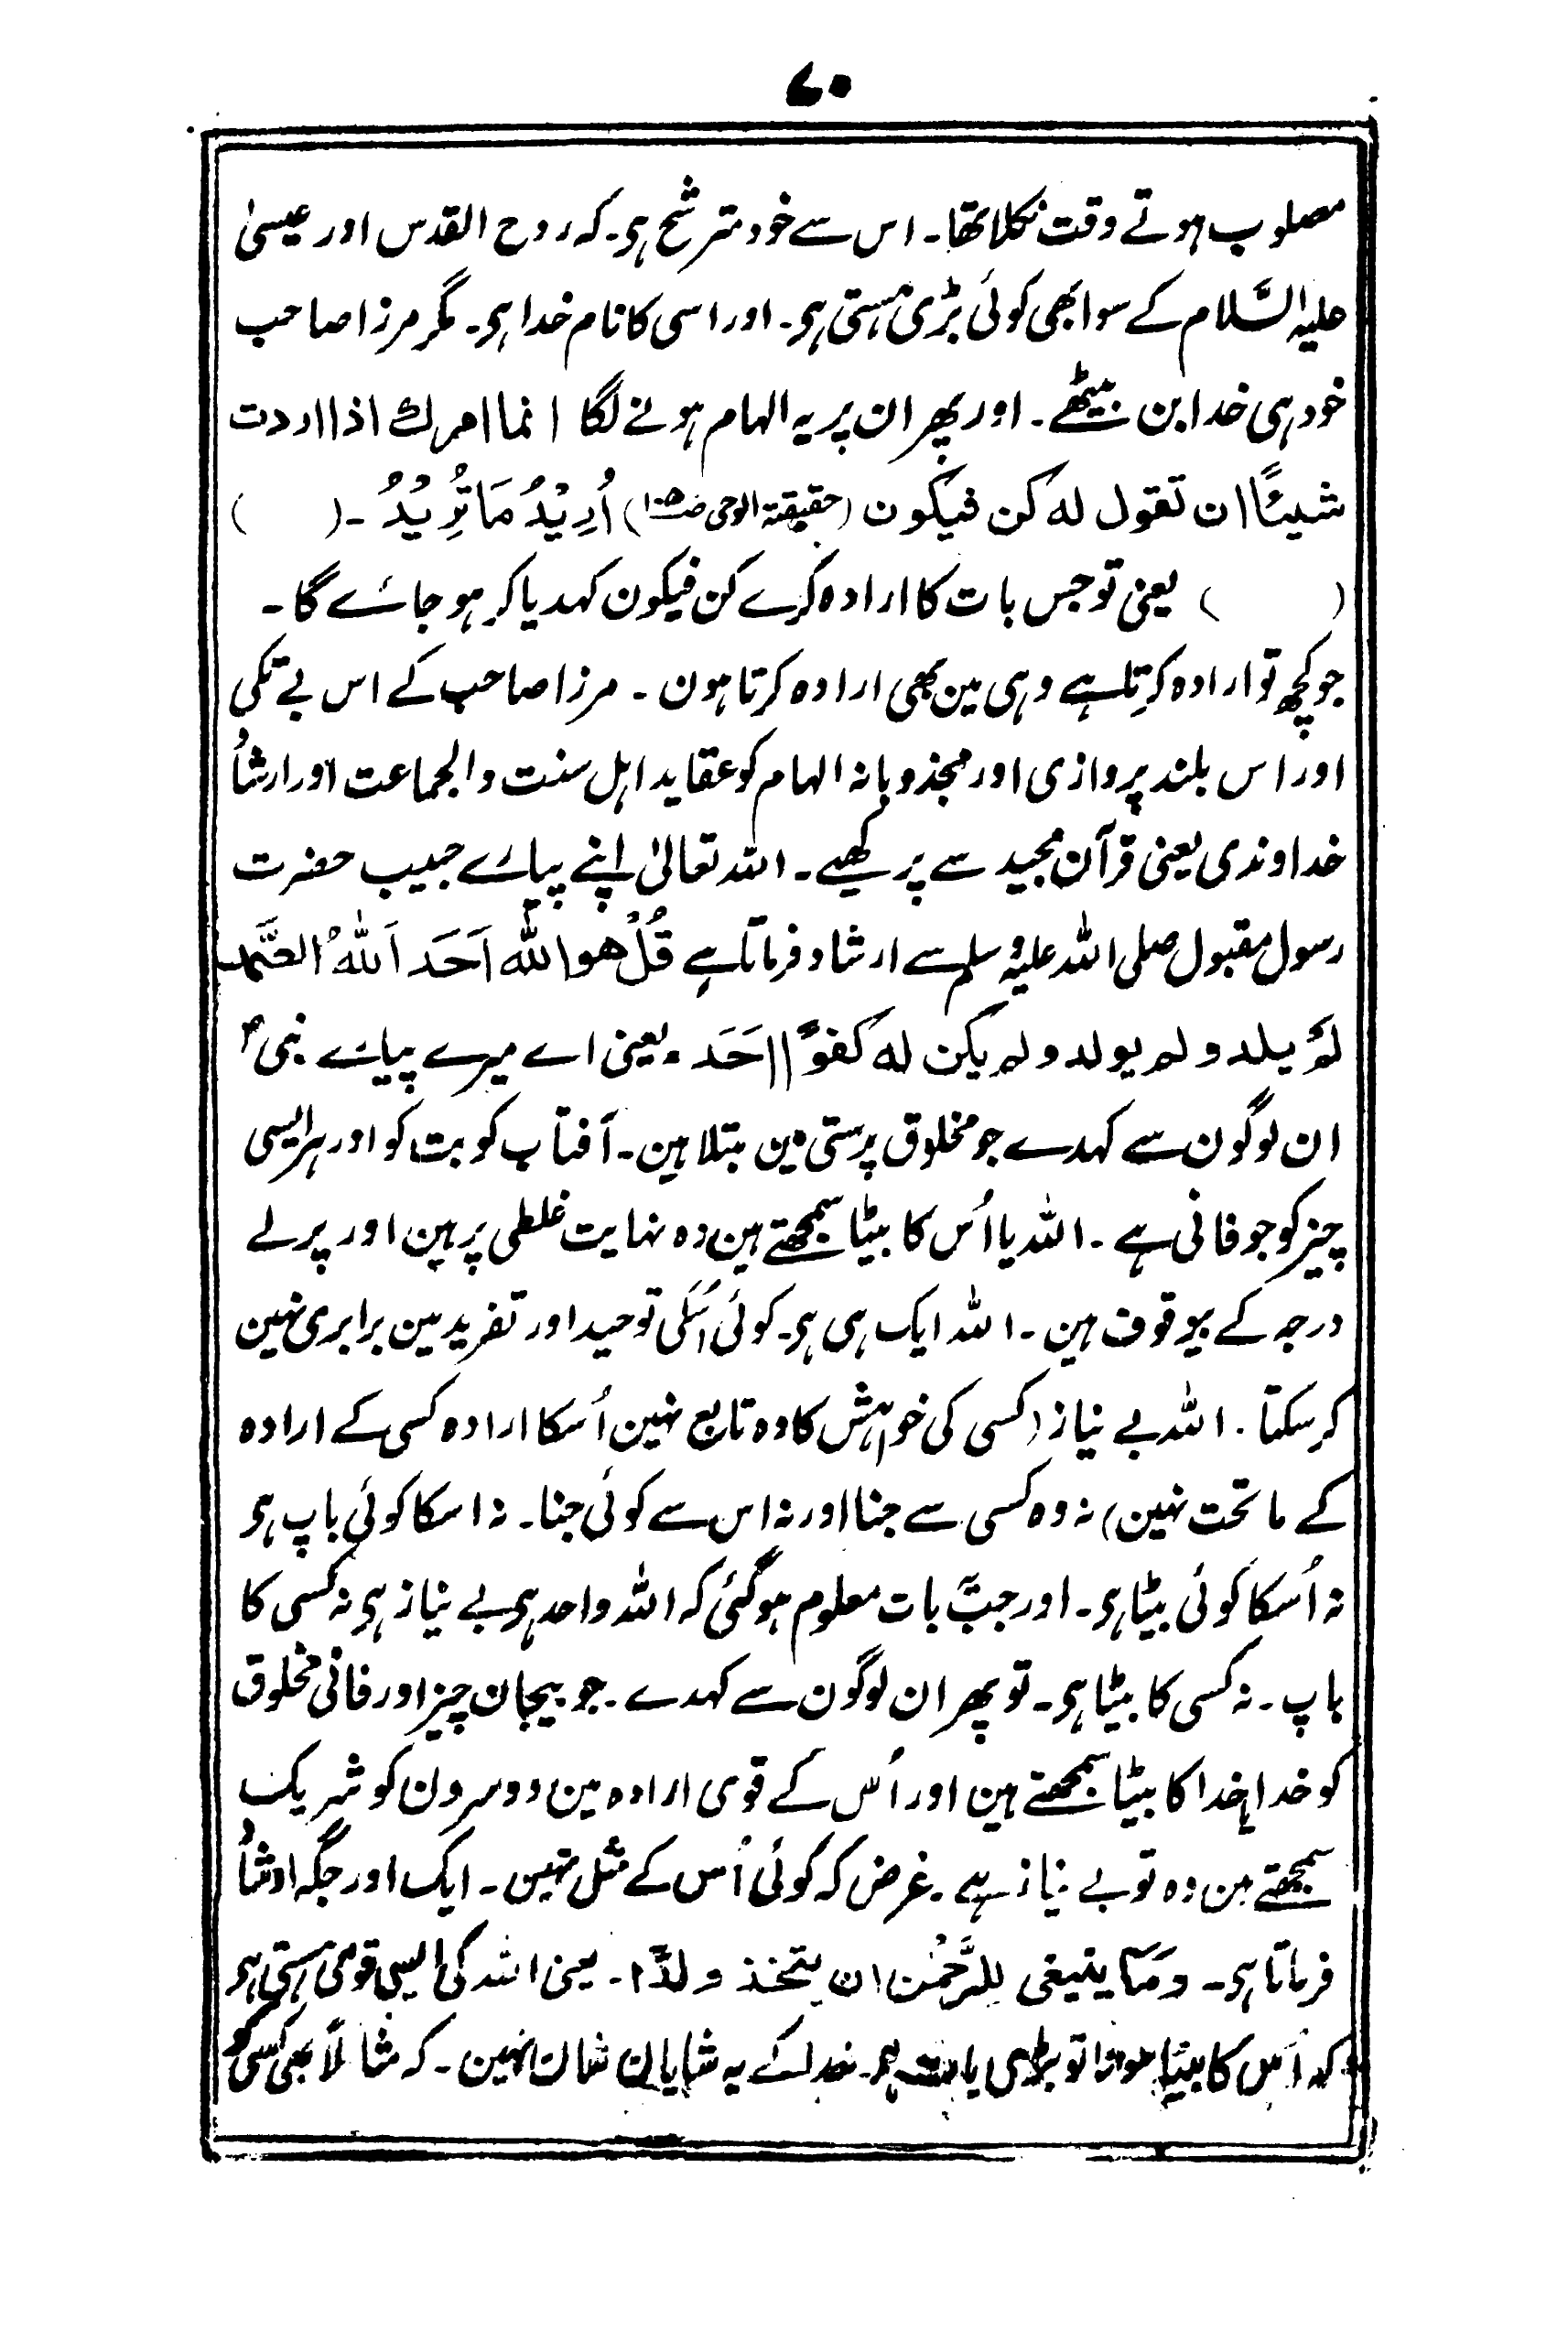 ۷۰
مصلوب ہوتے وقت نکلا تھا۔ اس سے خود مترشح ہی۔ کہ روح القدس اور عیسیٰ
علیہ السَّلام کے سوا بھی کوئی بڑی ہستی ہی۔ اور اسی کا نام خدا ہی۔ مگر مرزا صاحب
خود ہی خدا بن بیٹھے۔ اور پھر ان پر یہ الہام ہونے لگا انما امرك اذا اردت
شیئًا ان تقول له كن فیكون (حقیقۃ الوحی ص۱۰۵) اُرِیْدُ مَا تُرِیْدُ۔ ( )
( ) یعنی تو جس بات کا ارادہ کرے کن فیکون کہدیا کر ہو جائے گا۔
جو کچھ تو ارادہ کرتا ہے وہی مین بھی ارادہ کرتا ہون۔ مرزا صاحب کے اس بے تکی
اور اس بلند پروازی اور مجذوبانہ الہام کو عقاید اہل سنت والجماعت اور ارشادُ
خداوندی یعنی قرآن مجید سے پرکھیے۔ اللہ تعالیٰ اپنے پیارے حبیب حضرت
رسول مقبول صلی اللہ علیہ وسلم سے ارشاد فرماتا ہے قُلْ هو اللّٰه اَحَد اَللّٰهُ الصَّمد
لَمْ یلد و لم یولد و لم یكن له كفوًا اَحَد۔ یعنی اے میرے پیارے نبیؐ
ان لوگون سے کہدے جو مخلوق پرستی مین مبتلا ہین۔ آفتاب کو بت کو اور ہر ایسی
چیز کو جو فانی ہے۔ اللہ یا اُس کا بیٹا سمجھتے ہین وہ نہایت غلطی پر ہین اور پرلے
درجہ کے بیوقوف ہین۔ اللہ ایک ہی ہی۔ کوئی اُسکی توحید اور تفرید مین برابری نہین
کر سکتا۔ اللہ بے نیاز (کسی کی خواہش کا وہ تابع نہین اُسکا ارادہ کسی کے ارادہ
کے ماتحت نہین) نہ وہ کسی سے جنا اور نہ اس سے کوئی جنا۔ نہ اسکا کوئی باپ ہی
نہ اُسکا کوئی بیٹا ہی۔ اور جب یہ بات معلوم ہو گئی کہ اللہ واحد ہی بے نیاز ہی نہ کسی کا
باپ۔ نہ کسی کا بیٹا ہی۔ تو پھر ان لوگون سے کہدے۔ جو بیجان چیز اور فانی مخلوق
کو خدا یا خدا کا بیٹا سمجھتے ہین اور اُس کے قوی ارادہ مین دوسرون کو شریک
سمجھتے ہین وہ تو بے نیاز ہے۔ غرض کہ کوئی اُس کے مثل نہین۔ ایک اور جگہ ارشادُ
فرماتا ہی۔ وَمَا ینبغی لِلرَّحْمٰن ان یتخذ ولدًا۔ یعنی اللہ کی ایسی قومی ہستی ہی
کہ اُس کا بیٹا ہونا تو بڑی بات ہی۔ خدا کے یہ شایان شان نہین۔ کہ مثالاً بھی کسی کو